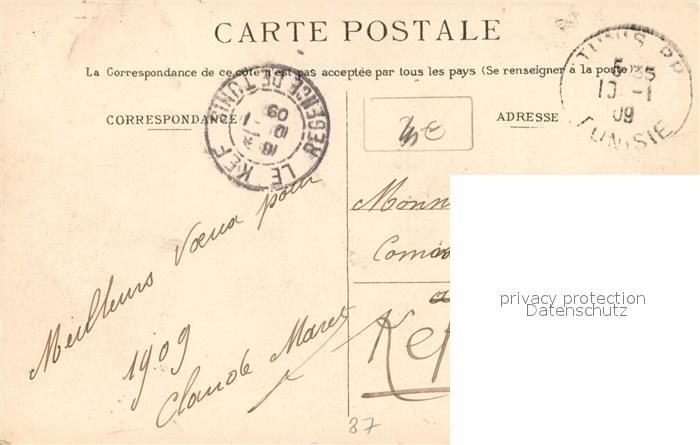 CARTE POSTALE
La Correspondance de ce côté n'est pas acceptée par tous les pays (Se renseigner à la poste)
CORRESPONDANCE
ADRESSE
LE KEF
REGENCE DE TUNIS
10 - 1
09
TUNIS R.P.
5 35
10 -1
09
TUNISIE
Meilleurs Vœux pour
1909
Claude Maret
Monn
Comm
a
Kef
37
privacy protection
Datenschutz